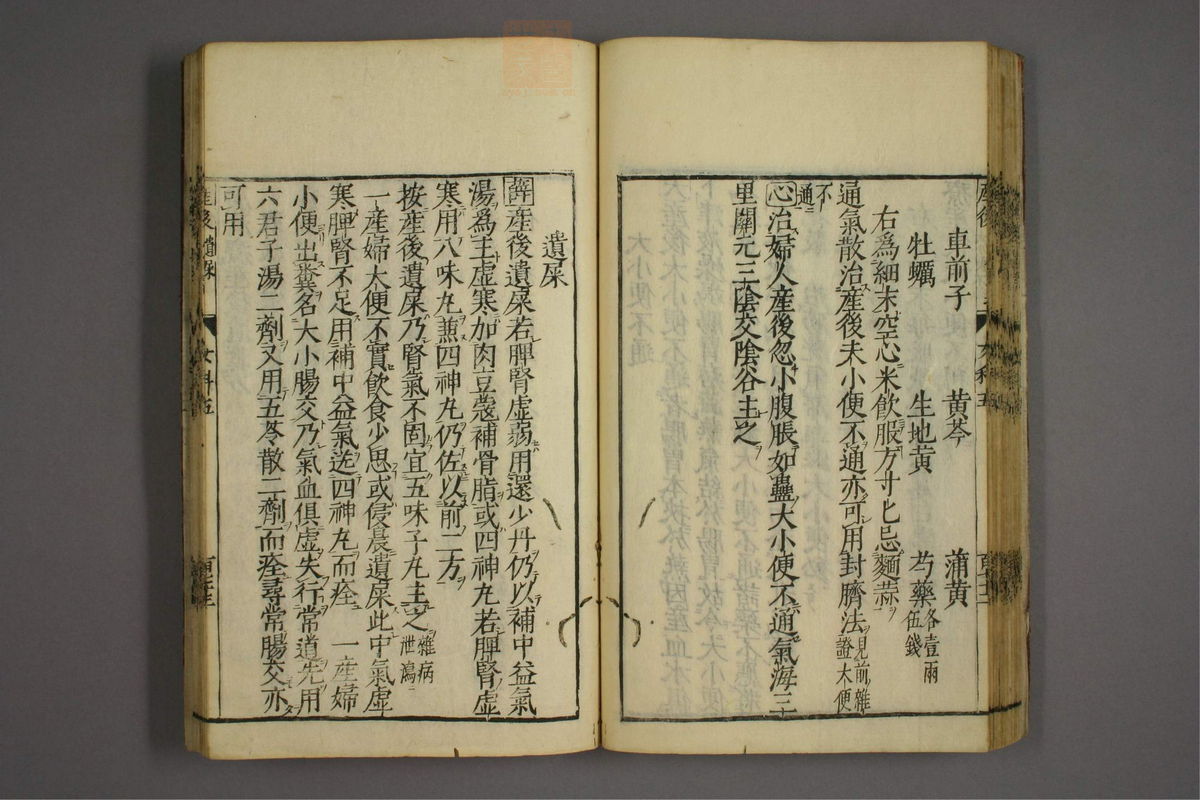 車前子 黄芩 蒲黄
牡蠣 生地黄 芍藥各壹兩伍錢
右為細末空心米飲服方寸匕忌麵蒜
通氣散治産後未小便不通亦可用封臍法見前雜證大便
不通
心治婦人産後忽小腹脹如蠱大小便不通氣海三
里關元三陰交陰谷主之
遺屎
薛産後遺屎若脾腎虛蒻用還少丹仍以補中益氣
湯為主虛寒加肉豆蔻補骨脂或四神丸若脾腎虛
寒用八味丸兼四神丸仍佐以前二方
按産後遺屎乃腎氣不固宜五味子丸主之雜病泄瀉
一産婦大便不實飲食少思或侵晨遺屎此中氣虛
寒脾腎不足用補中益氣送四神丸而痊 一産婦
小便出糞名大小腸交乃氣血俱虛失行常道先用
六君子湯二劑又用五苓散二劑而痊尋常腸交亦
可用
産後遺屎 女科五